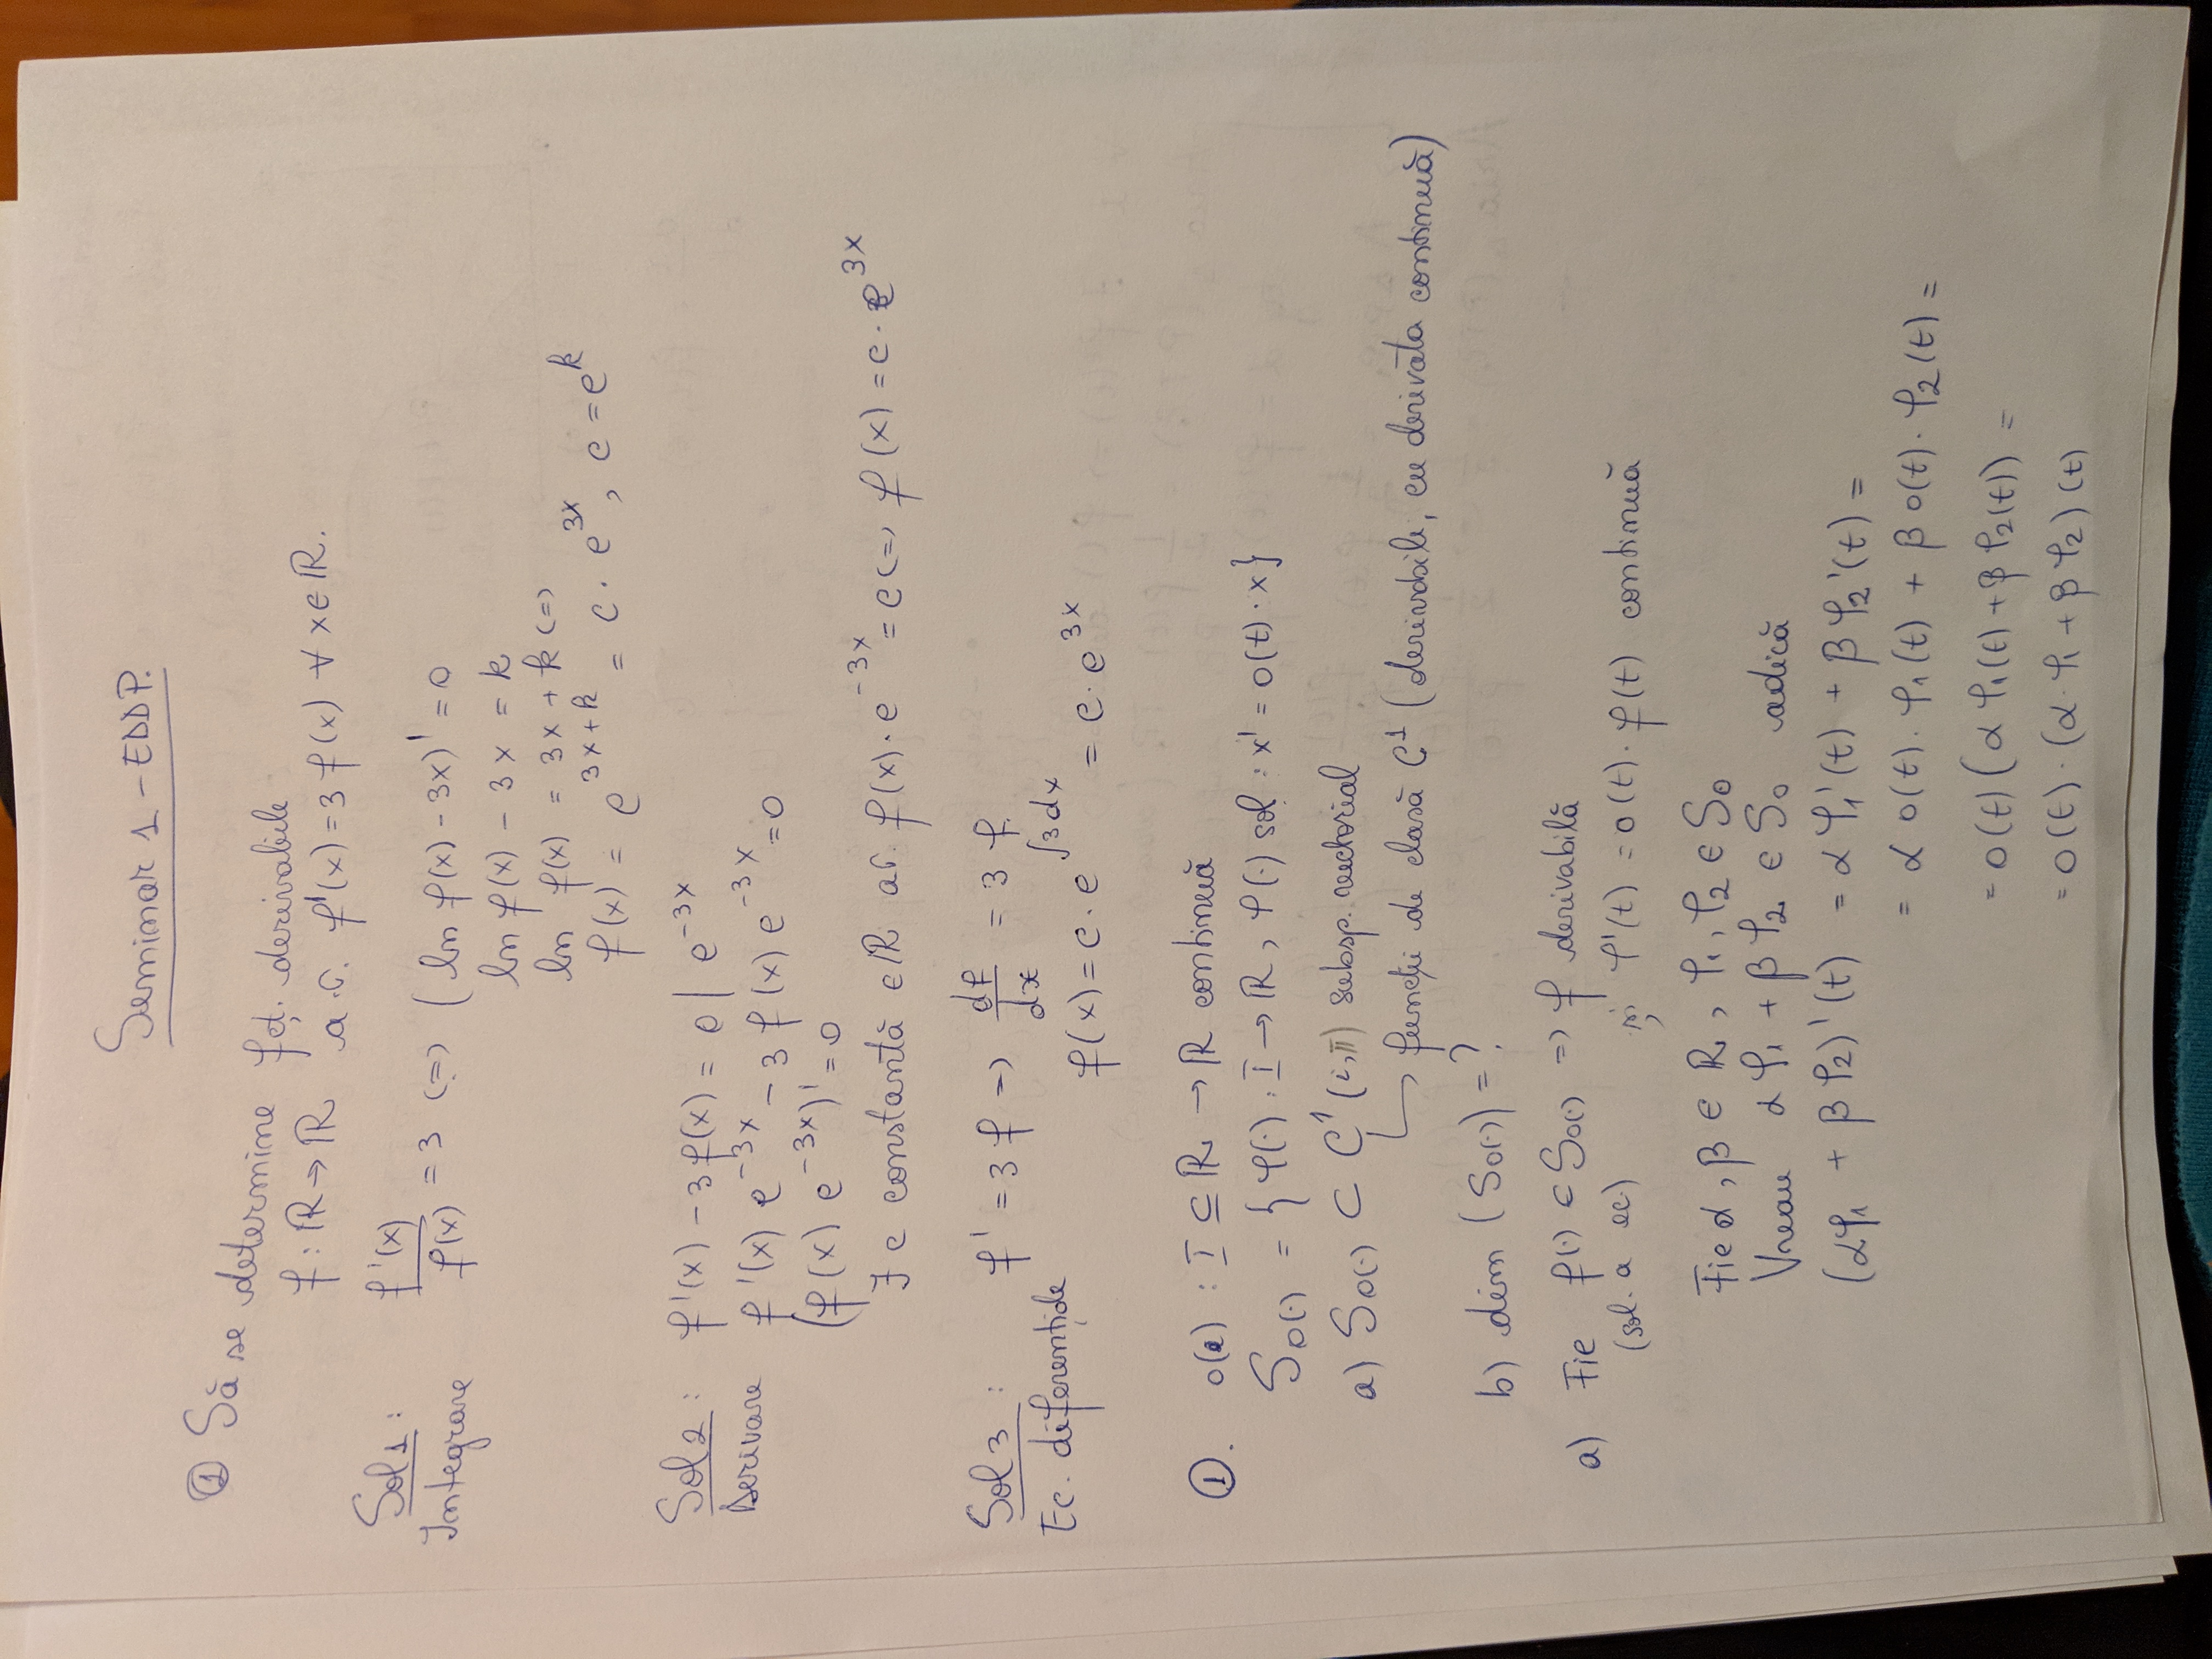 Seminar 1 - EDDP.
① Să se determine fcț. derivabile
f : ℝ → ℝ a.î. f'(x) = 3 f(x) ∀ x ∈ ℝ.
Sol 1 : f'(x)/f(x) = 3 (=) (ln f(x) - 3x)' = 0
Integrare
ln f(x) - 3x = k
ln f(x) = 3x + k (=)
f(x) = e^{3x+k} = c · e^{3x}, c = e^k
Sol 2 : f'(x) - 3f(x) = 0 | e^{-3x}
Derivare f'(x) e^{-3x} - 3 f(x) e^{-3x} = 0
(f(x) e^{-3x})' = 0
∃ c constantă ∈ ℝ a.î. f(x) · e^{-3x} = c (=) f(x) = c · e^{3x}
Sol 3 : f' = 3 f => df/dx = 3 f.
Ec. diferențiale
f(x) = c · e^{∫3dx} = c · e^{3x}
①. a(·) : I ⊆ ℝ → ℝ continuă
S_{a(·)} = { φ(·) : I → ℝ, φ(·) sol : x' = a(t) · x }
a) S_{a(·)} ⊂ C^1 (I, ℝ) subsp. vectorial
↳ funcții de clasă C^1 (derivabile, cu derivata continuă)
b) dim (S_{a(·)}) = ?
a) Fie f(·) ∈ S_{a(·)} => f derivabilă
(sol. a ec.) și φ'(t) = a(t) · f(t) continuă
Fie α, β ∈ ℝ, φ1, φ2 ∈ S_a
Vreau α φ1 + β φ2 ∈ S_a adică
(αφ1 + β φ2)'(t) = α φ1'(t) + β φ2'(t) =
= α a(t) · φ1(t) + β a(t) · φ2(t) =
= a(t) (α φ1(t) + β φ2(t)) =
= a(t) · (α · φ1 + β φ2) (t)